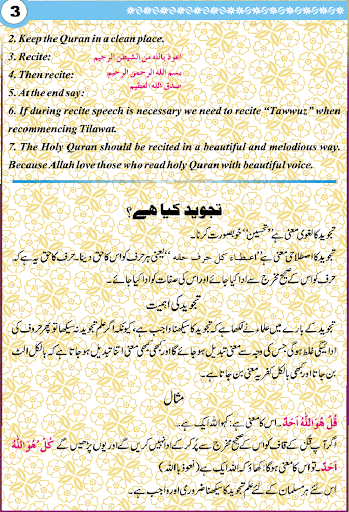 3
2. Keep the Quran in a clean place.
3. Recite: اعوذ بالله من الشيطن الرجيم
4. Then recite: بسم الله الرحمن الرحيم
5. At the end say: صدق الله العظيم
6. If during recite speech is necessary we need to recite "Tawwuz" when
recommencing Tilawat.
7. The Holy Quran should be recited in a beautiful and melodious way.
Because Allah love those who read holy Quran with beautiful voice.
تجوید کیا ھے؟
تجوید کا لغوی معنی ہے ’’تحسین‘‘ خوبصورت کرنا۔
تجوید کا اصطلاحی معنی ہے ’’اعطاء کل حرف حقہ‘‘ یعنی ہر حرف کو اس کا حق دینا۔ حرف کا حق یہ ہے کہ
حرف کو اس کے صحیح مخرج سے ادا کیا جائے اور اس کی صفات کو ادا کیا جائے۔
تجوید کی اہمیت
تجوید کے بارے میں علماء نے لکھا ہے کہ تجوید کا سیکھنا واجب ہے، کیونکہ اگر علم تجوید نہ سیکھا تو پھر حروف کی
ادائیگی غلط ہوگی جس کی وجہ سے معنی تبدیل ہو جائے گا اور کبھی کبھی معنی اتنا تبدیل ہو جاتا ہے کہ بالکل الٹ
بن جاتا اور کبھی بالکل کفریہ معنی بن جاتا ہے۔
مثال
قُلْ هُوَ اللّٰهُ اَحَدٌ۔ اس کا معنی ہے: کہو اللہ ایک ہے۔
اگر آپ قُلْ کے قاف کو اس کے صحیح مخرج سے پُر کر کے ادا نہیں کریں گے اور یوں پڑھیں گے كُلْ هُوَ اللّٰهُ
اَحَدٌ۔ تو اس کا معنی ہوگا: کھاؤ کہ اللہ ایک ہے۔ (نعوذ باللہ)
اس لئے ہر مسلمان کے لئے علم تجوید کا سیکھنا ضروری اور واجب ہے۔